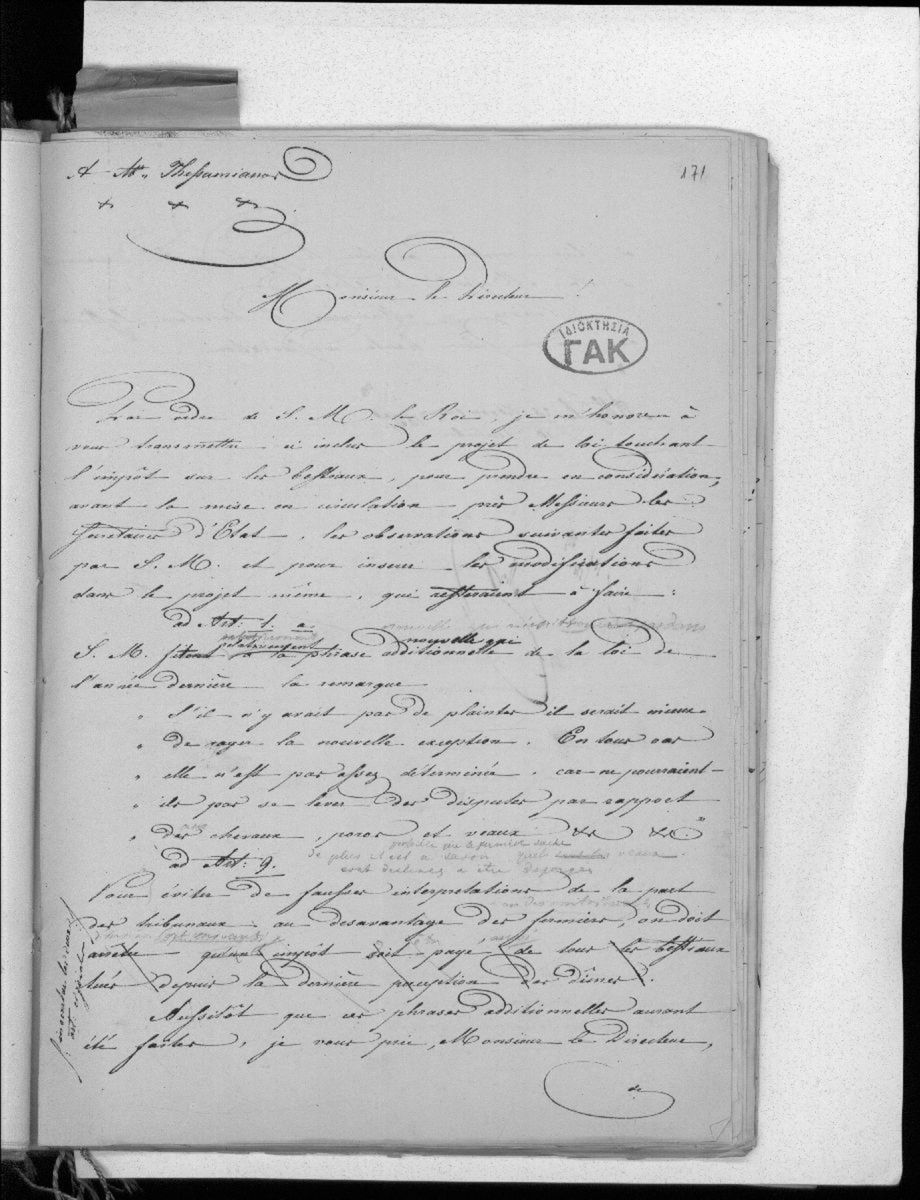 A Mr. Thessumianos
171
Monsieur le Directeur!
ΙΔΙΟΚΤΗΣΙΑ
ΓΑΚ
Par ordre de S. M. le Roi je m'honore à
vous transmettre ci inclus le projet de loi touchant
l'impôt sur les bestiaux, pour prendre en considération,
avant la mise en circulation près Messieurs les
Secrétaires d'Etat, les observations suivantes faites
par S. M. et pour inserer les modifications
dans le projet même, qui resteraient à faire:
ad Art: 1. a.
relativement nouvelle qui
S. M. à la phrase additionnelle de la loi de
l'année dernière la remarque
„ S'il n'y avait pas de plaintes il serait mieux
„ de rayer la nouvelle exception. En tous cas
„ elle n'est pas assez déterminée, car ne pourraient
„ ils pas se lever des disputes par rapport
„ des chevaux, porcs et veaux &c &c"
de plus il est a savoir quels veaux
sont destinés a être
ad Art: 9.
Pour éviter de fausses interpretations de la part
des tribunaux au desavantage des fermiers, on doit
arrêter qu'un impôt soit payé de tous les bestiaux
tués depuis la dernière perception des dîmes.
Aussitôt que ces phrases additionnelles auront
été faites, je vous prie, Monsieur le Directeur,
de